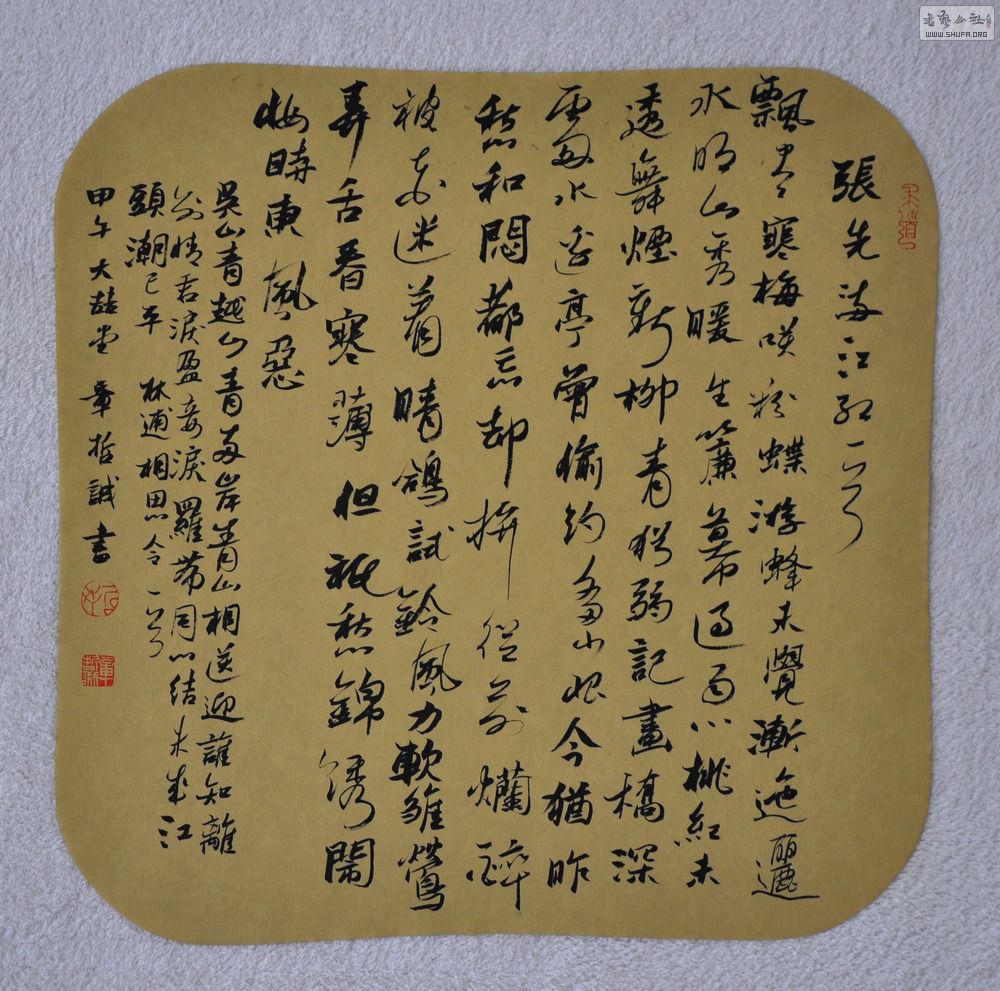 張先滿江紅一首
飄盡寒梅笑粉蝶游蜂未覺漸迤邐
水明山秀暖生簾幕過雨小桃紅未
透舞煙新柳青猶弱記畫橋深
處水邊亭曾偷約多少恨今猶昨
愁和悶都忘却拚從前爛醉
被花迷着晴鴿試鈴風力軟雛鶯
弄舌春寒薄但祇愁錦繡鬧
妝時東風惡
吳山青越山青兩岸青山相送迎誰知離
別情君淚盈妾淚羅帶同心結未成江
頭潮已平 林逋相思令一首
甲午大喆堂章哲誠書
書藝公社
WWW.SHUFA.ORG